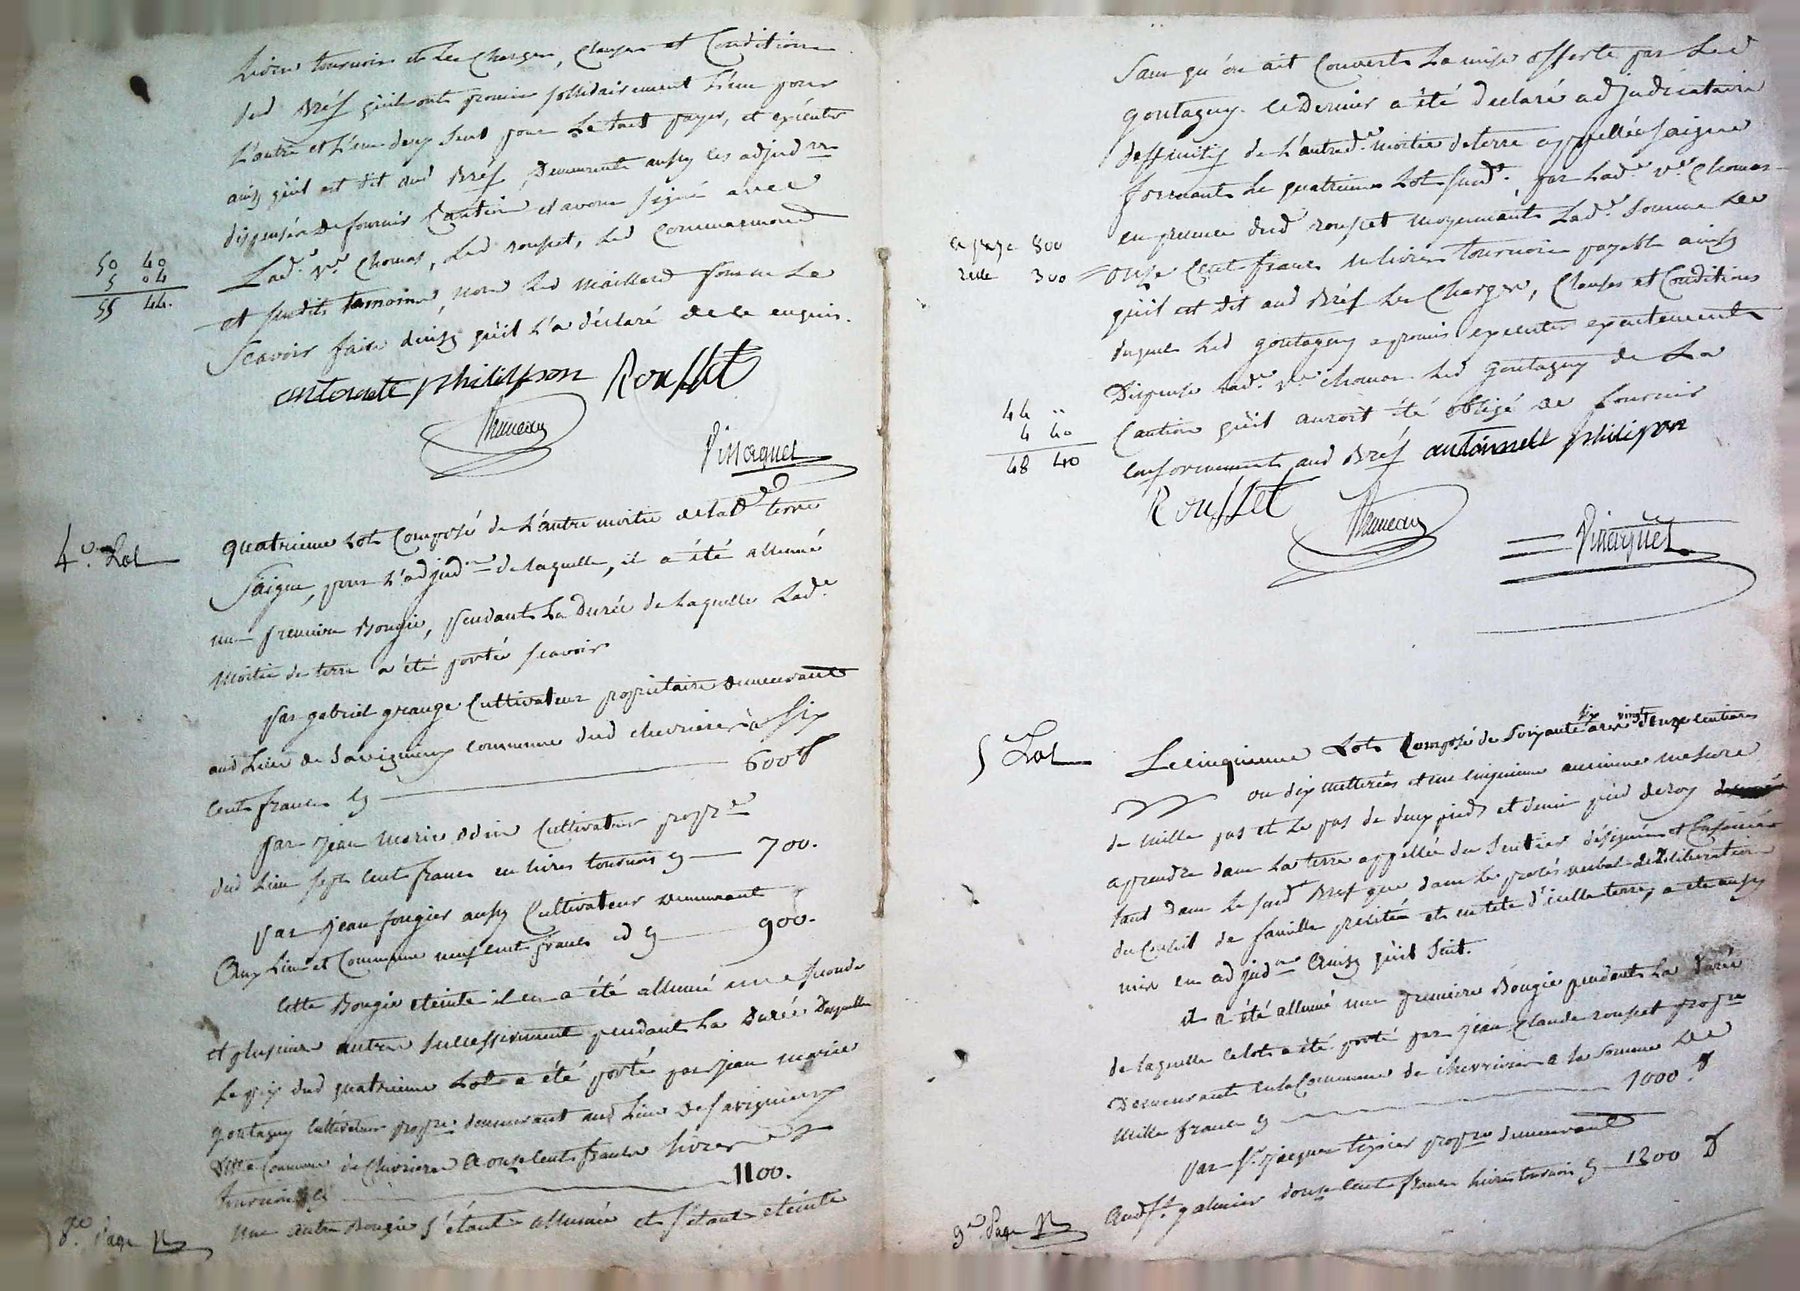 Livres tournois et les Charges, Clauses et Conditions
dud Bréf qu'ils ont promis sollidairement l'un pour
l'autre et l'un deux seul pour le tout payer, et exécuter
ainsy qu'il est dit aud Bréf, Demeurent aussy les adjud.res
dispensés De fournir Caution et avons signé avec
Lad.e v.e Chomas, Led rousset, led Commarmond
50 40
5 04
55 44.
et susdits temoins, non led maillard pour ne le
Scavoir faire ainsy qu'il l'a déclaré de ce enquis.
antoinette philippon Rousset
Thimeau
Pissorquet
4.e Lot
quatrieme lot Composé de L'autre moitie de lad.e terre
Saigne, pour L'adjud.on de laquelle, il a été allumé
une premiere Bougie, pendant La Durée de Laquelle Lad.e
moitie de terre a été portée scavoir
par gabriel grange Cultivateur propriétaire demeurant
aud Lieu de Savignieux commune dud chevrieres a six
cents francs cy 600 f
par jean marie odin Cultivateur prop.re
dud Lieu sept cent francs en livres tournois cy 700.
par jean fougier aussy Cultivateur Demeurant
aux Lieu et Commune neuf cent francs id cy 900.
Cette Bougie eteinte il en a été allumé une seconde
et plusieurs autres successivement pendant La Durée Desquelles
Le prix dud quatrieme Lot a été porté par jean marie
gontagny Cultivateur prop.re demeurant aud Lieu de Savignieux
Ditte Commune de Chevrieres a onze cents francs livres
tournois cy 1100.
une autre Bougie s'étant allumée et s'étant eteinte
8.e Page
Sans qu'on ait Couvert La mise offerte par Led
gontagny. Ce Dernier a été declaré adjudicataire
deffinitif de L'autre d.e moitie de terre appellée Saigne
formant Le quatrieme Lot susd., par Lad.e v.e Chomas
en presence dud rousset moyennant Lad.e Somme de
300
300
onze Cent francs en livres tournois payable ainsy
qu'il est dit aud Bréf les Charges, Clauses et Conditions
duquel led gontagny a promis executer exactement
Dispense lad.e v.e Chomas led gontagny de La
44 ..
4 40
48 40
Caution qu'il auroit été obligé de fournir
Conformement aud Bréf antoinette philippon
Rousset
Thimeau
Pissorquet
5 Lot
Le cinquieme Lot Composé de Soixante dix ares vingt onze centiares
ou dix metterées et un cinquieme ancienne mesure
de mille pas et le pas de deux pieds et demi pied de roy
a prendre dans La terre appellée du Sentier désignée et Confinée
tant dans le susd Bref que dans le procès verbal de Déliberation
du Conseil de famille précités et en tete d'icelle terre, a été aussy
mis en adjud.on Ainsy qu'il Suit.
il a été allumé une premiere Bougie pendant La durée
de laquelle ce lot a été porté par jean Claude rousset prop.re
Demeurant en la Commune de chevrieres a la Somme de
mille francs cy 1000. f
par s.r jacques tixier prop.re demeurant
aud s.t galmier douze cent francs livres tournois cy 1200 f
9.e Page